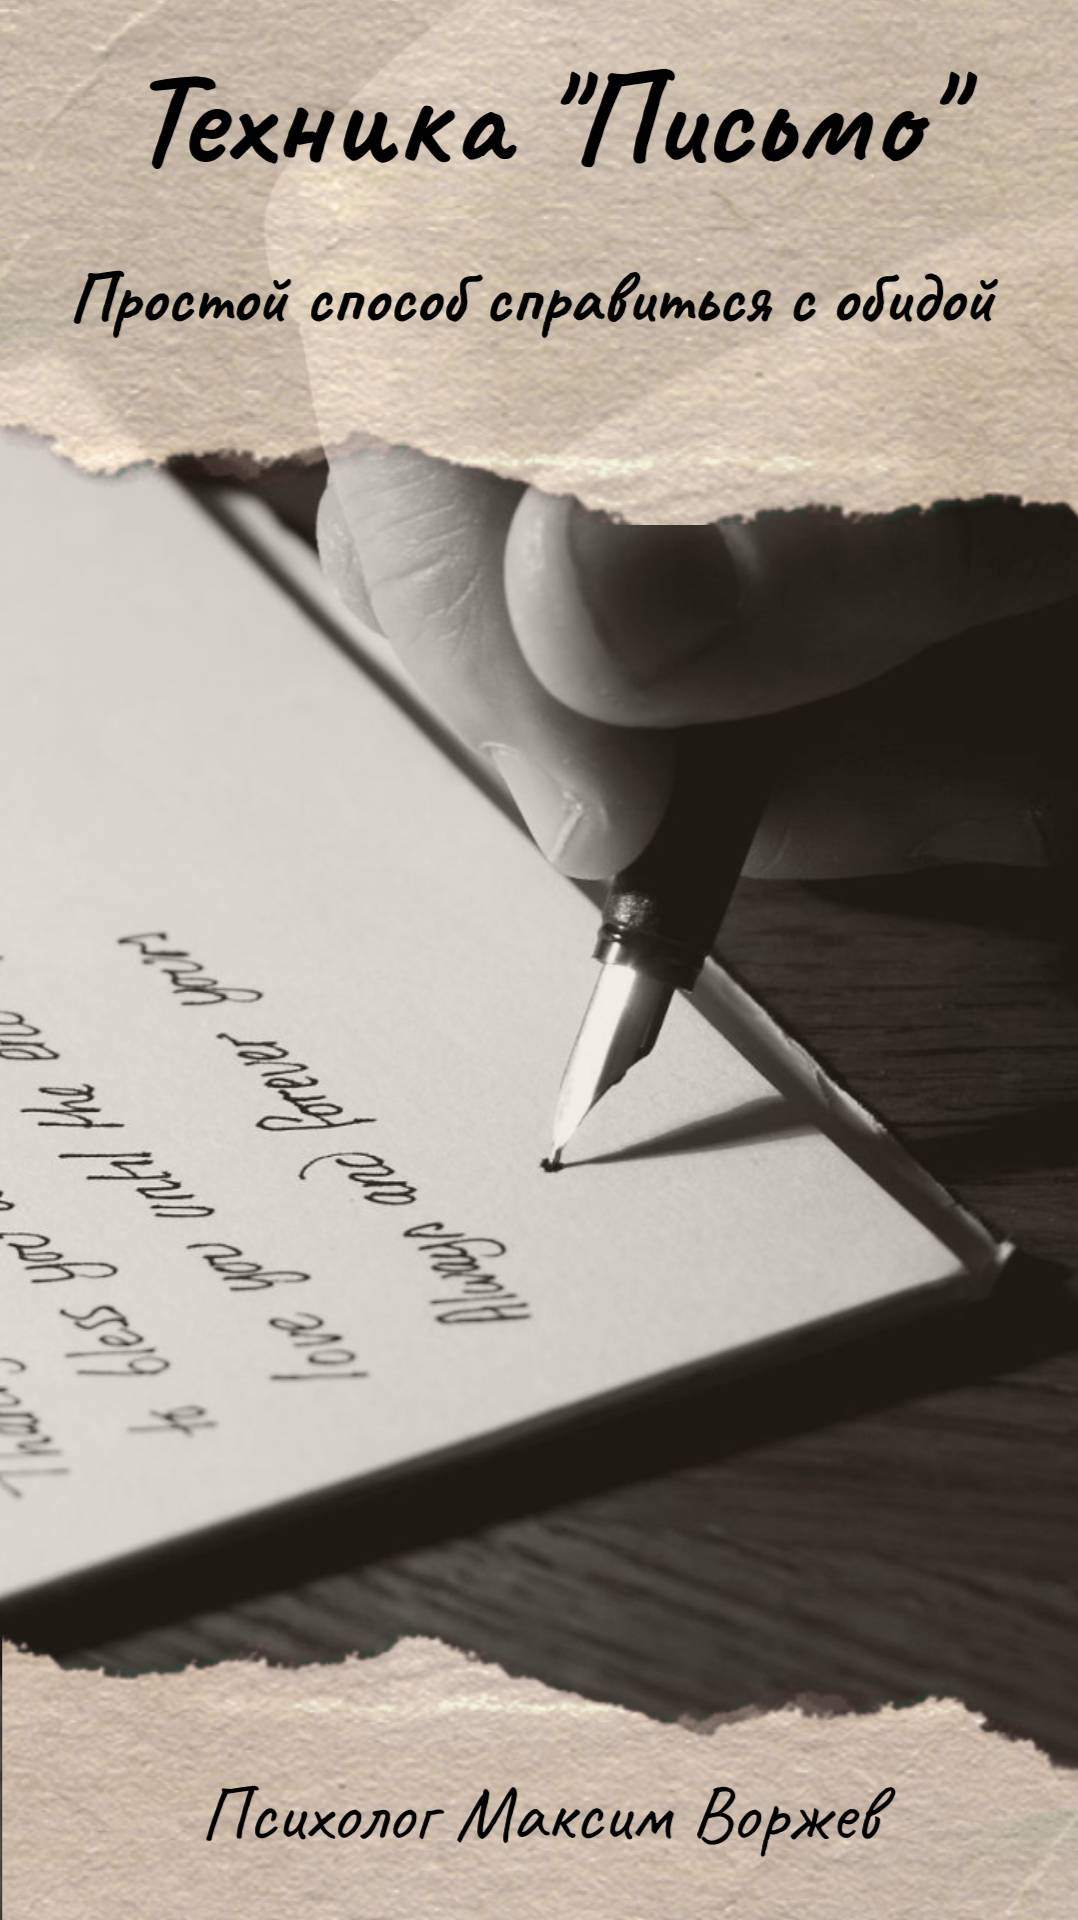 Техника "Письмо"
Простой способ справиться с обидой
yours
the end
forever
until
and
you
you
Always
bless
love
to
Психолог Максим Воржев